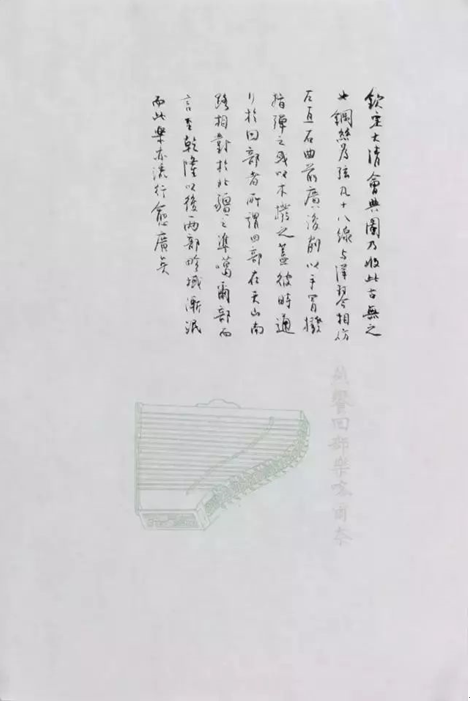 欽定大清會典圖乃收此古無之
也鋼絲為弦凡十八線與洋琴相仿
左直右曲前廣後削以手冒撥
指彈之或以木撥之蓋彼時通
行於回部者所謂回部在天山南
路相對於北疆之準噶爾部而
言至乾隆以後兩部畛域漸泯
而此樂亦流行愈廣矣
燕饗回部樂喀爾奈